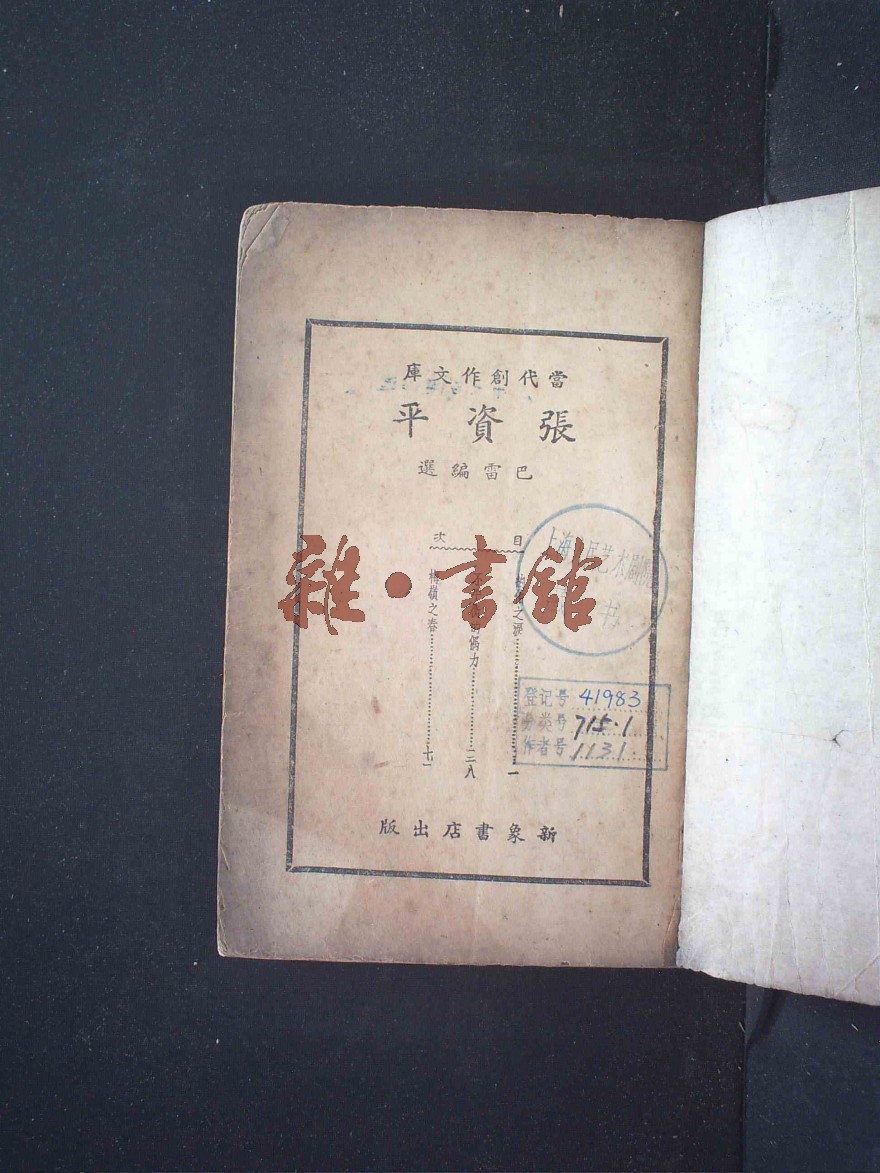 當代創作文庫
張資平
巴雷編選
目次
之淚……一
偶力……二八
梅嶺之春……七一
新象書店出版
雜·書館
上海 民艺术剧院
书
登记号 41983
分类号 715.1
作者号 1131